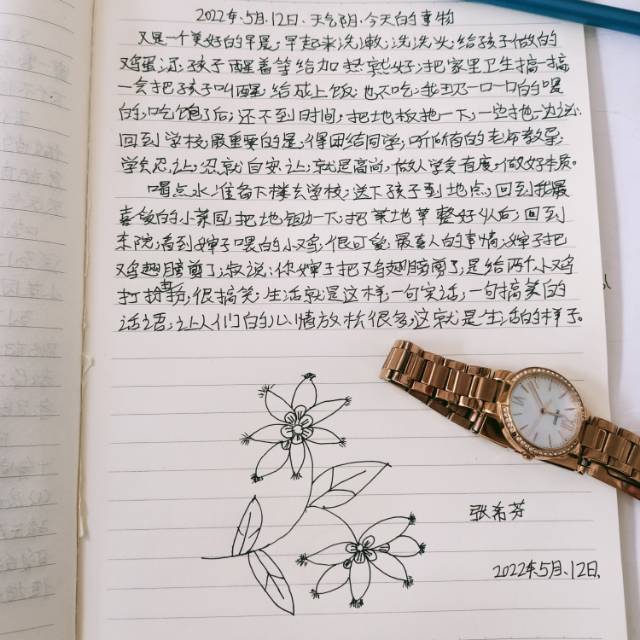 2022年.5月.12日.天气阴.今天的事物
又是一个美好的早晨,早起来洗漱,洗洗头,给孩子做的
鸡蛋,还孩子醒着等给加热就好,把家里卫生搞一搞
一会把孩子叫醒,给成上饭,也不吃,我一口一口的喂
的,吃饱了后,还不到时间,把地板拖一下,一些拖一边说
回到学校,最重要的是,得团结同学,听所有的老师教导,
学会忍,让,忍就自安,让,就是高尚,做人学会有度,做好本质。
喝点水,准备下楼去学校,送下孩子到地点,回到我最
喜爱的小菜园,把地锄一下,把菜地草整好以后,回到
东院,看到婶子喂的小鸡,很可爱,最喜人的事情,婶子把
鸡翅膀剪了,叔说:你婶子把鸡翅膀剪了,是给两个小鸡
打扮,很搞笑,生活就是这样,一句实话,一句搞笑的
话语,让人们的心情放松很多,这就是生活的样子。
张希芳
2022年5月.12日.